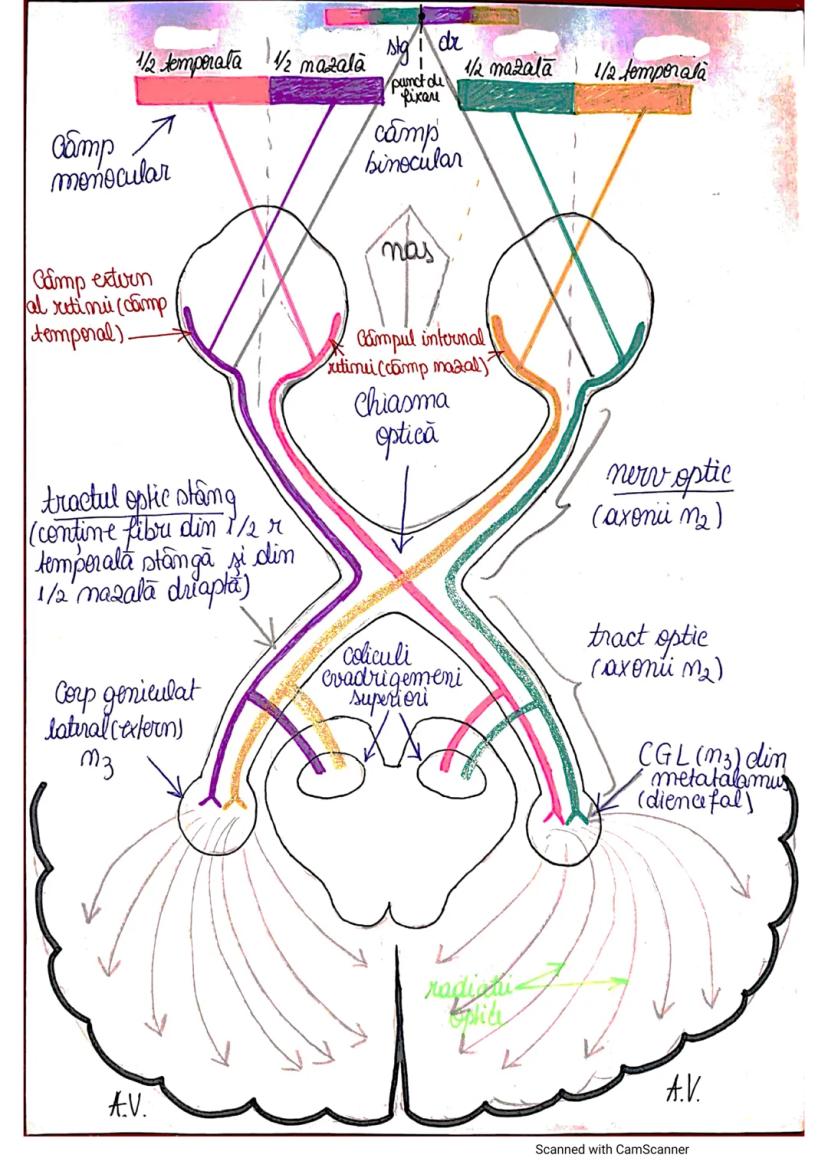 stg dr
1/2 temporală 1/2 nazală
punct de fixare
1/2 nazală 1/2 temporală
Câmp
monocular
câmp
binocular
nas
Câmp extern
al retinii (câmp
temporal)
Câmpul internal
retinii (câmp nazal)
Chiasma
optică
nerv optic
(axonii n2)
tractul optic stâng
(conține fibri din 1/2 r
temporală stângă și din
1/2 nazală driaptă)
tract optic
(axonii n2)
Coliculi
cvadrigemeni
superiori
Corp geniculat
lateral (extern)
n3
CGL (n3) din
metatalamus
(diencefal)
radiații
optice
A.V.
A.V.
Scanned with CamScanner